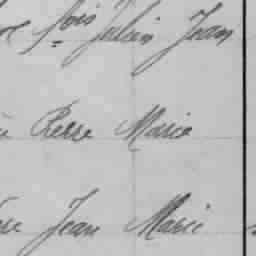 fois Julien Jean
Pierre Marie
Jean Marie